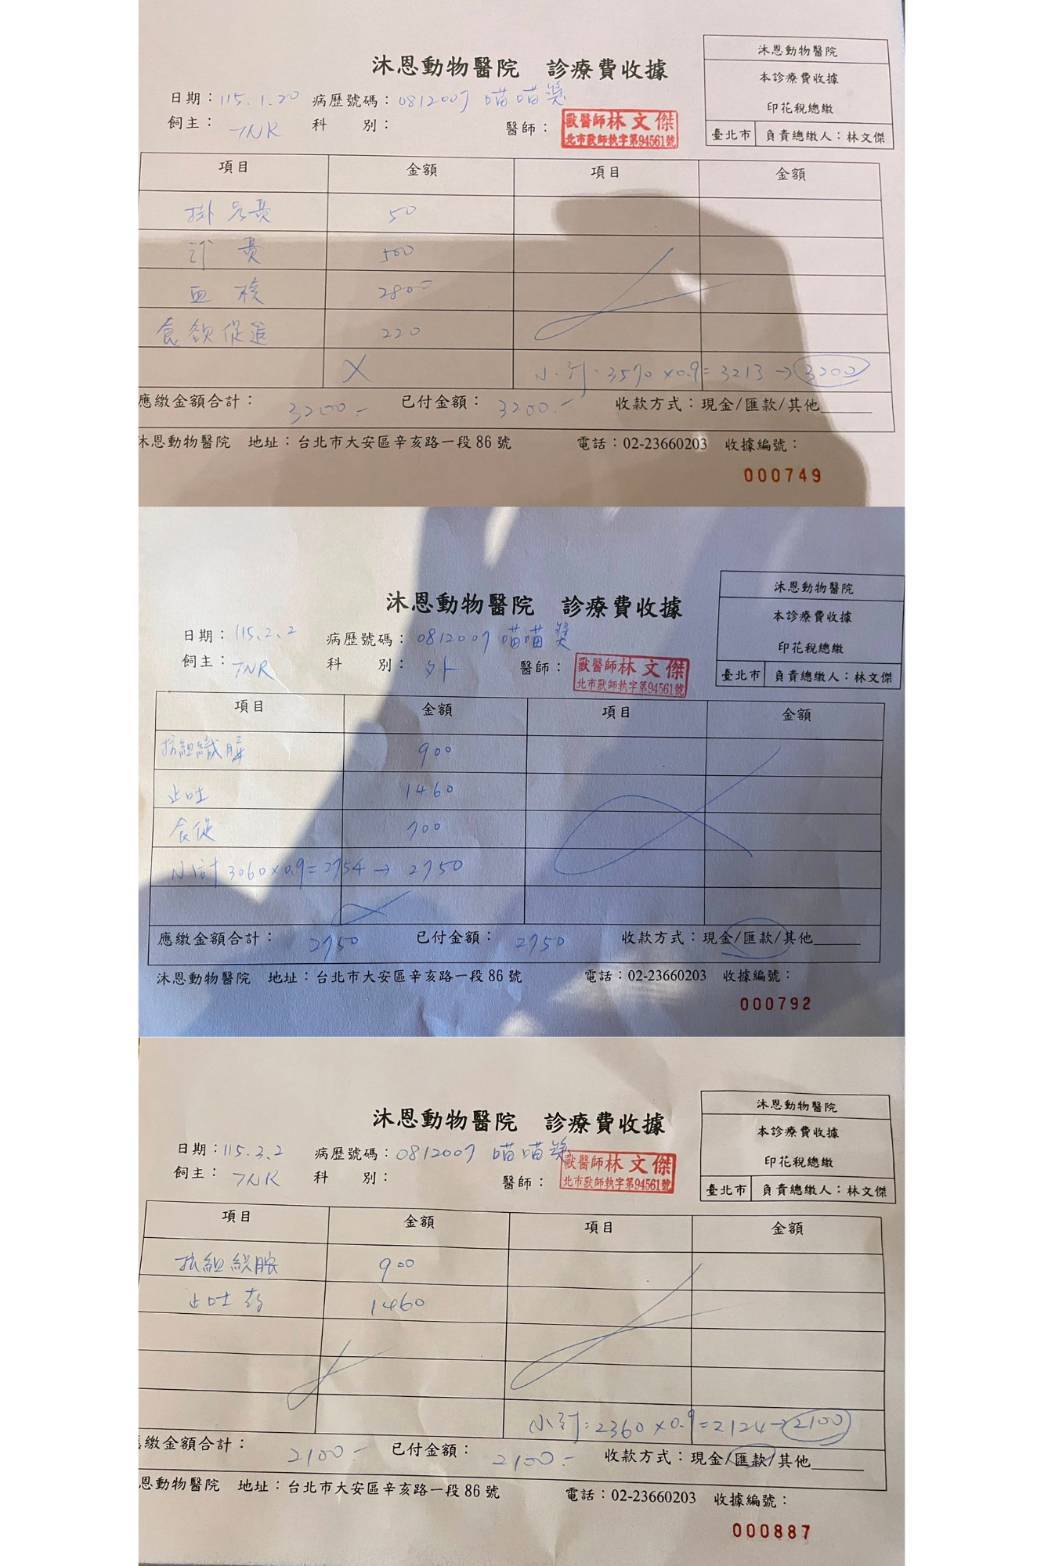 沐恩動物醫院 診療費收據
沐恩動物醫院
本診療費收據
印花稅總繳
臺北市 負責總繳人：林文傑
日期：115.1.20 病歷號碼：0812007 喵喵獎
飼主：TNR 科 別： 醫師：獸醫師林文傑
北市獸師執字第94561號
項目 金額 項目 金額
掛号費 50
診費 500
血檢 2800-
食欲促進 220
小計：3570×0.9=3213→3200
應繳金額合計：3200.- 已付金額：3200.- 收款方式：現金/匯款/其他
沐恩動物醫院 地址：台北市大安區辛亥路一段86號 電話：02-23660203 收據編號：
000749
沐恩動物醫院 診療費收據
沐恩動物醫院
本診療費收據
印花稅總繳
臺北市 負責總繳人：林文傑
日期：115.2.2 病歷號碼：0812007 喵喵獎
飼主：TNR 科 別：外 醫師：獸醫師林文傑
北市獸師執字第94561號
項目 金額 項目 金額
抗組織胺 900
止吐 1460
食促 700
小計3060×0.9=2754→2750
應繳金額合計：2750 已付金額：2750 收款方式：現金/匯款/其他
沐恩動物醫院 地址：台北市大安區辛亥路一段86號 電話：02-23660203 收據編號：
000792
沐恩動物醫院 診療費收據
沐恩動物醫院
本診療費收據
印花稅總繳
臺北市 負責總繳人：林文傑
日期：115.3.2 病歷號碼：0812007 喵喵獎
飼主：TNR 科 別： 醫師：獸醫師林文傑
北市獸師執字第94561號
項目 金額 項目 金額
抗組織胺 900
止吐葯 1460
小計：2360×0.9=2124→2100
繳金額合計：2100- 已付金額：2100.- 收款方式：現金/匯款/其他
恩動物醫院 地址：台北市大安區辛亥路一段86號 電話：02-23660203 收據編號：
000887